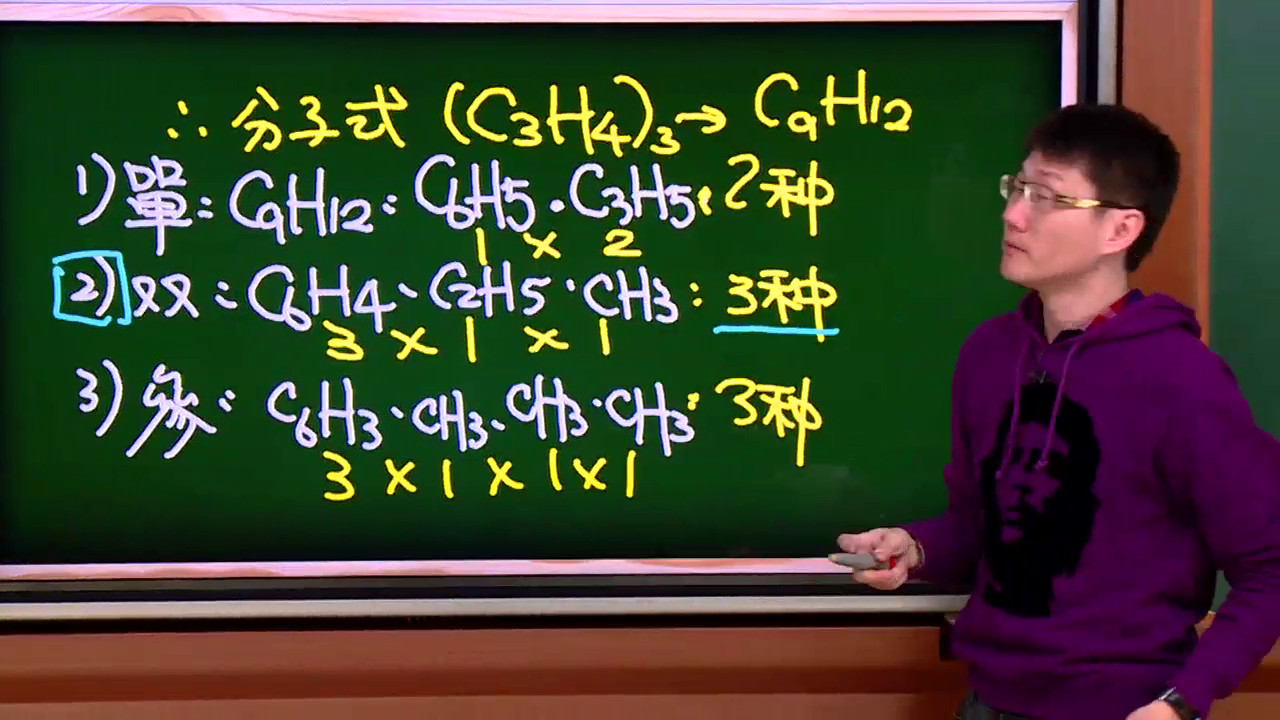 ∴ 分子式 (C3H4)3 → C9H12
1) 單: C9H12: C6H5 · C3H5: 2种
1 × 2
2) 双: C6H4 · C2H5 · CH3: 3种
3 × 1 × 1
3) 參: C6H3 · CH3 · CH3 · CH3: 3种
3 × 1 × 1 × 1